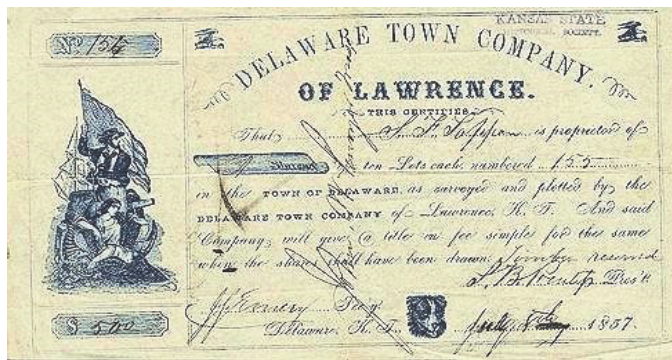 KANSAS STATE
HISTORICAL SOCIETY.
No. 154
DELAWARE TOWN COMPANY.
OF LAWRENCE.
THIS CERTIFIES
That S. F. Tappan is proprietor of
Shares ten Lots each, numbered 155
in the TOWN OF DELAWARE, as surveyed and plotted by the
DELAWARE TOWN COMPANY of Lawrence, K. T. And said
Company will give a title in fee simple for the same
when the shares shall have been drawn. Timber reserved
S. B. Prentiss Pres't
$ 500
J. S. Emery Sec'y.
Delaware, K. T. July 1857.